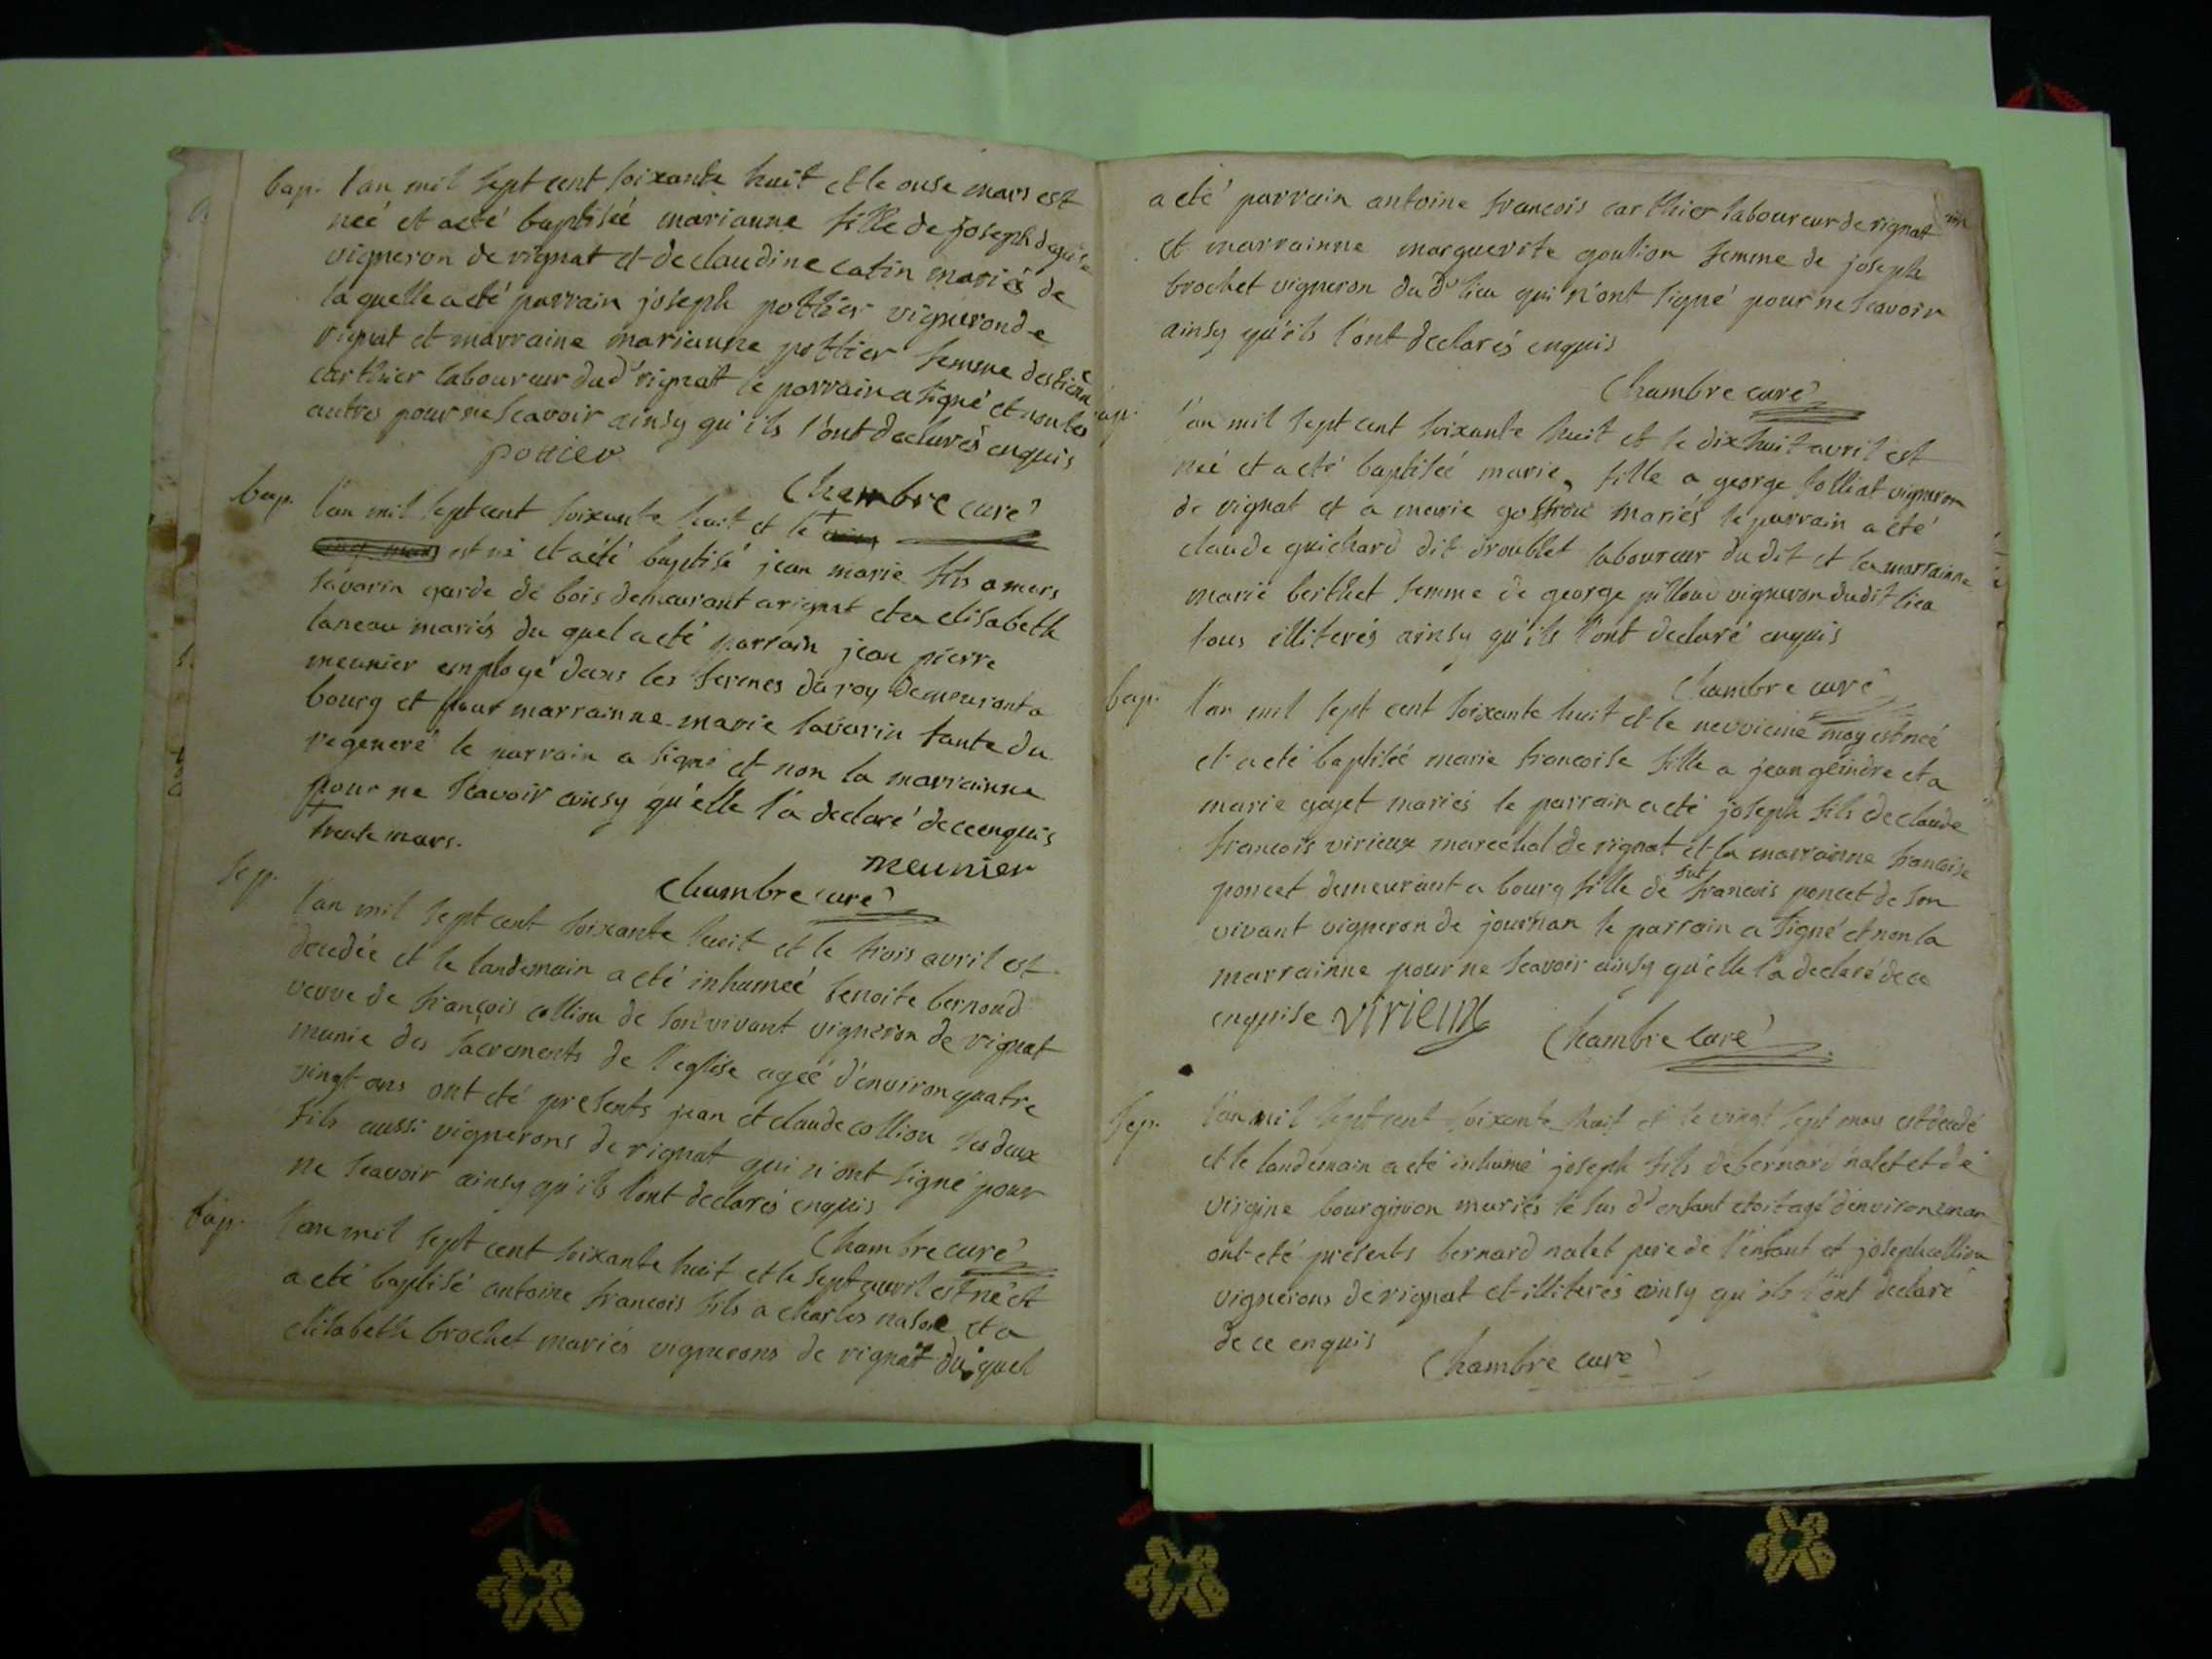 bap. l'an mil sept cent soixante huit et le onse mars est
neé et a eté baptiseé marianne fille de joseph
vigneron de rignat et de claudine catin mariés de
laquelle a eté parrain joseph pottier vigneron de
rignat et marraine marianne pottier femme destiene
carthier laboureur dud' rignat le parrain a signé et non les
autres pour ne scavoir ainsy qu'ils l'ont declarés enquis
pottier
Chambre curé
bap. l'an mil sept cent soixante huit et le +
est né et a été baptisé jean marie fils a
savarin garde de bois demeurant a rignat et a elisabeth
laneau mariés du quel a eté parrain jean pierre
meunier employé dans les fermes du roy demeurant a
bourg et pour marrainne marie savarin tante du
regeneré le parrain a signé et non la marrainne
pour ne scavoir ainsy qu'elle l'a declaré de ce enquis
+
trente mars.
meunier
Chambre curé
sep. l'an mil sept cent soixante huit et le trois avril est
decedée et le landemain a eté inhumeé benoite bernond
veuve de françois collion de son vivant vigneron de rignat
munie des sacrements de l'eglise ageé d'environ quatre
vingt ans ont eté presents jean et claude collion ses deux
fils aussi vignerons de rignat qui n'ont signé pour
ne scavoir ainsy qu'ils l'ont declarés enquis
Chambre curé
bap. l'an mil sept cent soixante huit et le sept avril est né et
a eté baptisé antoine francois fils a charles et a
elisabeth brochet mariés vignerons de rignat du quel
a eté parrain antoine francois carthier laboureur de rignat
et marrainne marguerite goulion femme de joseph
brochet vigneron du d' lieu qui n'ont signé pour ne scavoir
ainsy qu'ils l'ont declarés enquis
Chambre curé
bap. l'an mil sept cent soixante huit et le dix huit avril est
neé et a eté baptiseé marie, fille a george folliat vigneron
de rignat et a marie mariés le parrain a eté
claude guichard dit droublet laboureur du dit et la marrainne
marie berthet femme de george pilloud vigneron dudit lieu
tous illiterés ainsy qu'ils l'ont declaré enquis
Chambre curé
bap. l'an mil sept cent soixante huit et le neuvieme may est neé
et a eté baptiseé marie francoise fille a jean gleindre et a
marie gayet mariés le parrain a eté joseph fils de claude
francois virieux marechal de rignat et la marrainne francoise
poncet demeurant a bourg fille de fut francois poncet de son
vivant vigneron de journan le parrain a signé et non la
marrainne pour ne scavoir ainsy qu'elle l'a declaré de ce
enquise virieux
Chambre curé
sep. l'an mil sept cent soixante huit et le vingt sept may est decedé
et le landemain a eté inhumé joseph fils de bernard nalet et de
virgine bourginion mariés le sus d' enfant etoit agé d'environ un an
ont eté présents bernard nalet pere de l'enfant et joseph collion
vignerons de rignat et illiterés ainsy qu'ils l'ont declaré
de ce enquis
Chambre curé